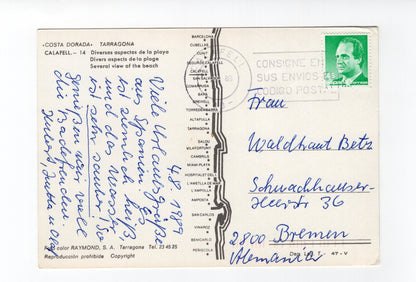 «COSTA DORADA» TARRAGONA
CALAFELL. - 14 Diversos aspectos de la playa
Divers aspects de la plage
Several view of the beach
4.8.1989
Viele Urlaubsgrüße
aus Spanien. Es
ist ziemlich heiß
und das Wasser
ist sehr sauber. So
grüßen nun
die Badefreunde
Hubert, Jutta u.
Foto color RAYMOND, S. A. Tarragona Tel. 23 45 25
Reproducción prohibida Copyright
BARCELONA
CUBELLAS
CUNIT
SEGUR DE CALAFELL
CALAFELL
SAN SALVADOR
COMARRUGA
BARA
CREIXELL
TORREDEMBARRA
ALTAFULLA
TARRAGONA
SALOU
VILAFORTUNY
CAMBRILS
MIAMI PLAYA
HOSPITALET
L'AMETLLA
L'AMPOLLA
SAN CARLOS
VINAROZ
BENICARLO
PEÑISCOLA
CONSIGNE EN
SUS ENVIOS EL
CODIGO POSTAL
Frau
Waldtraut Betz
Schwachhauser-
Heerstr 36
2800 Bremen
Alemania
Dep. Leg. T. 47 - V